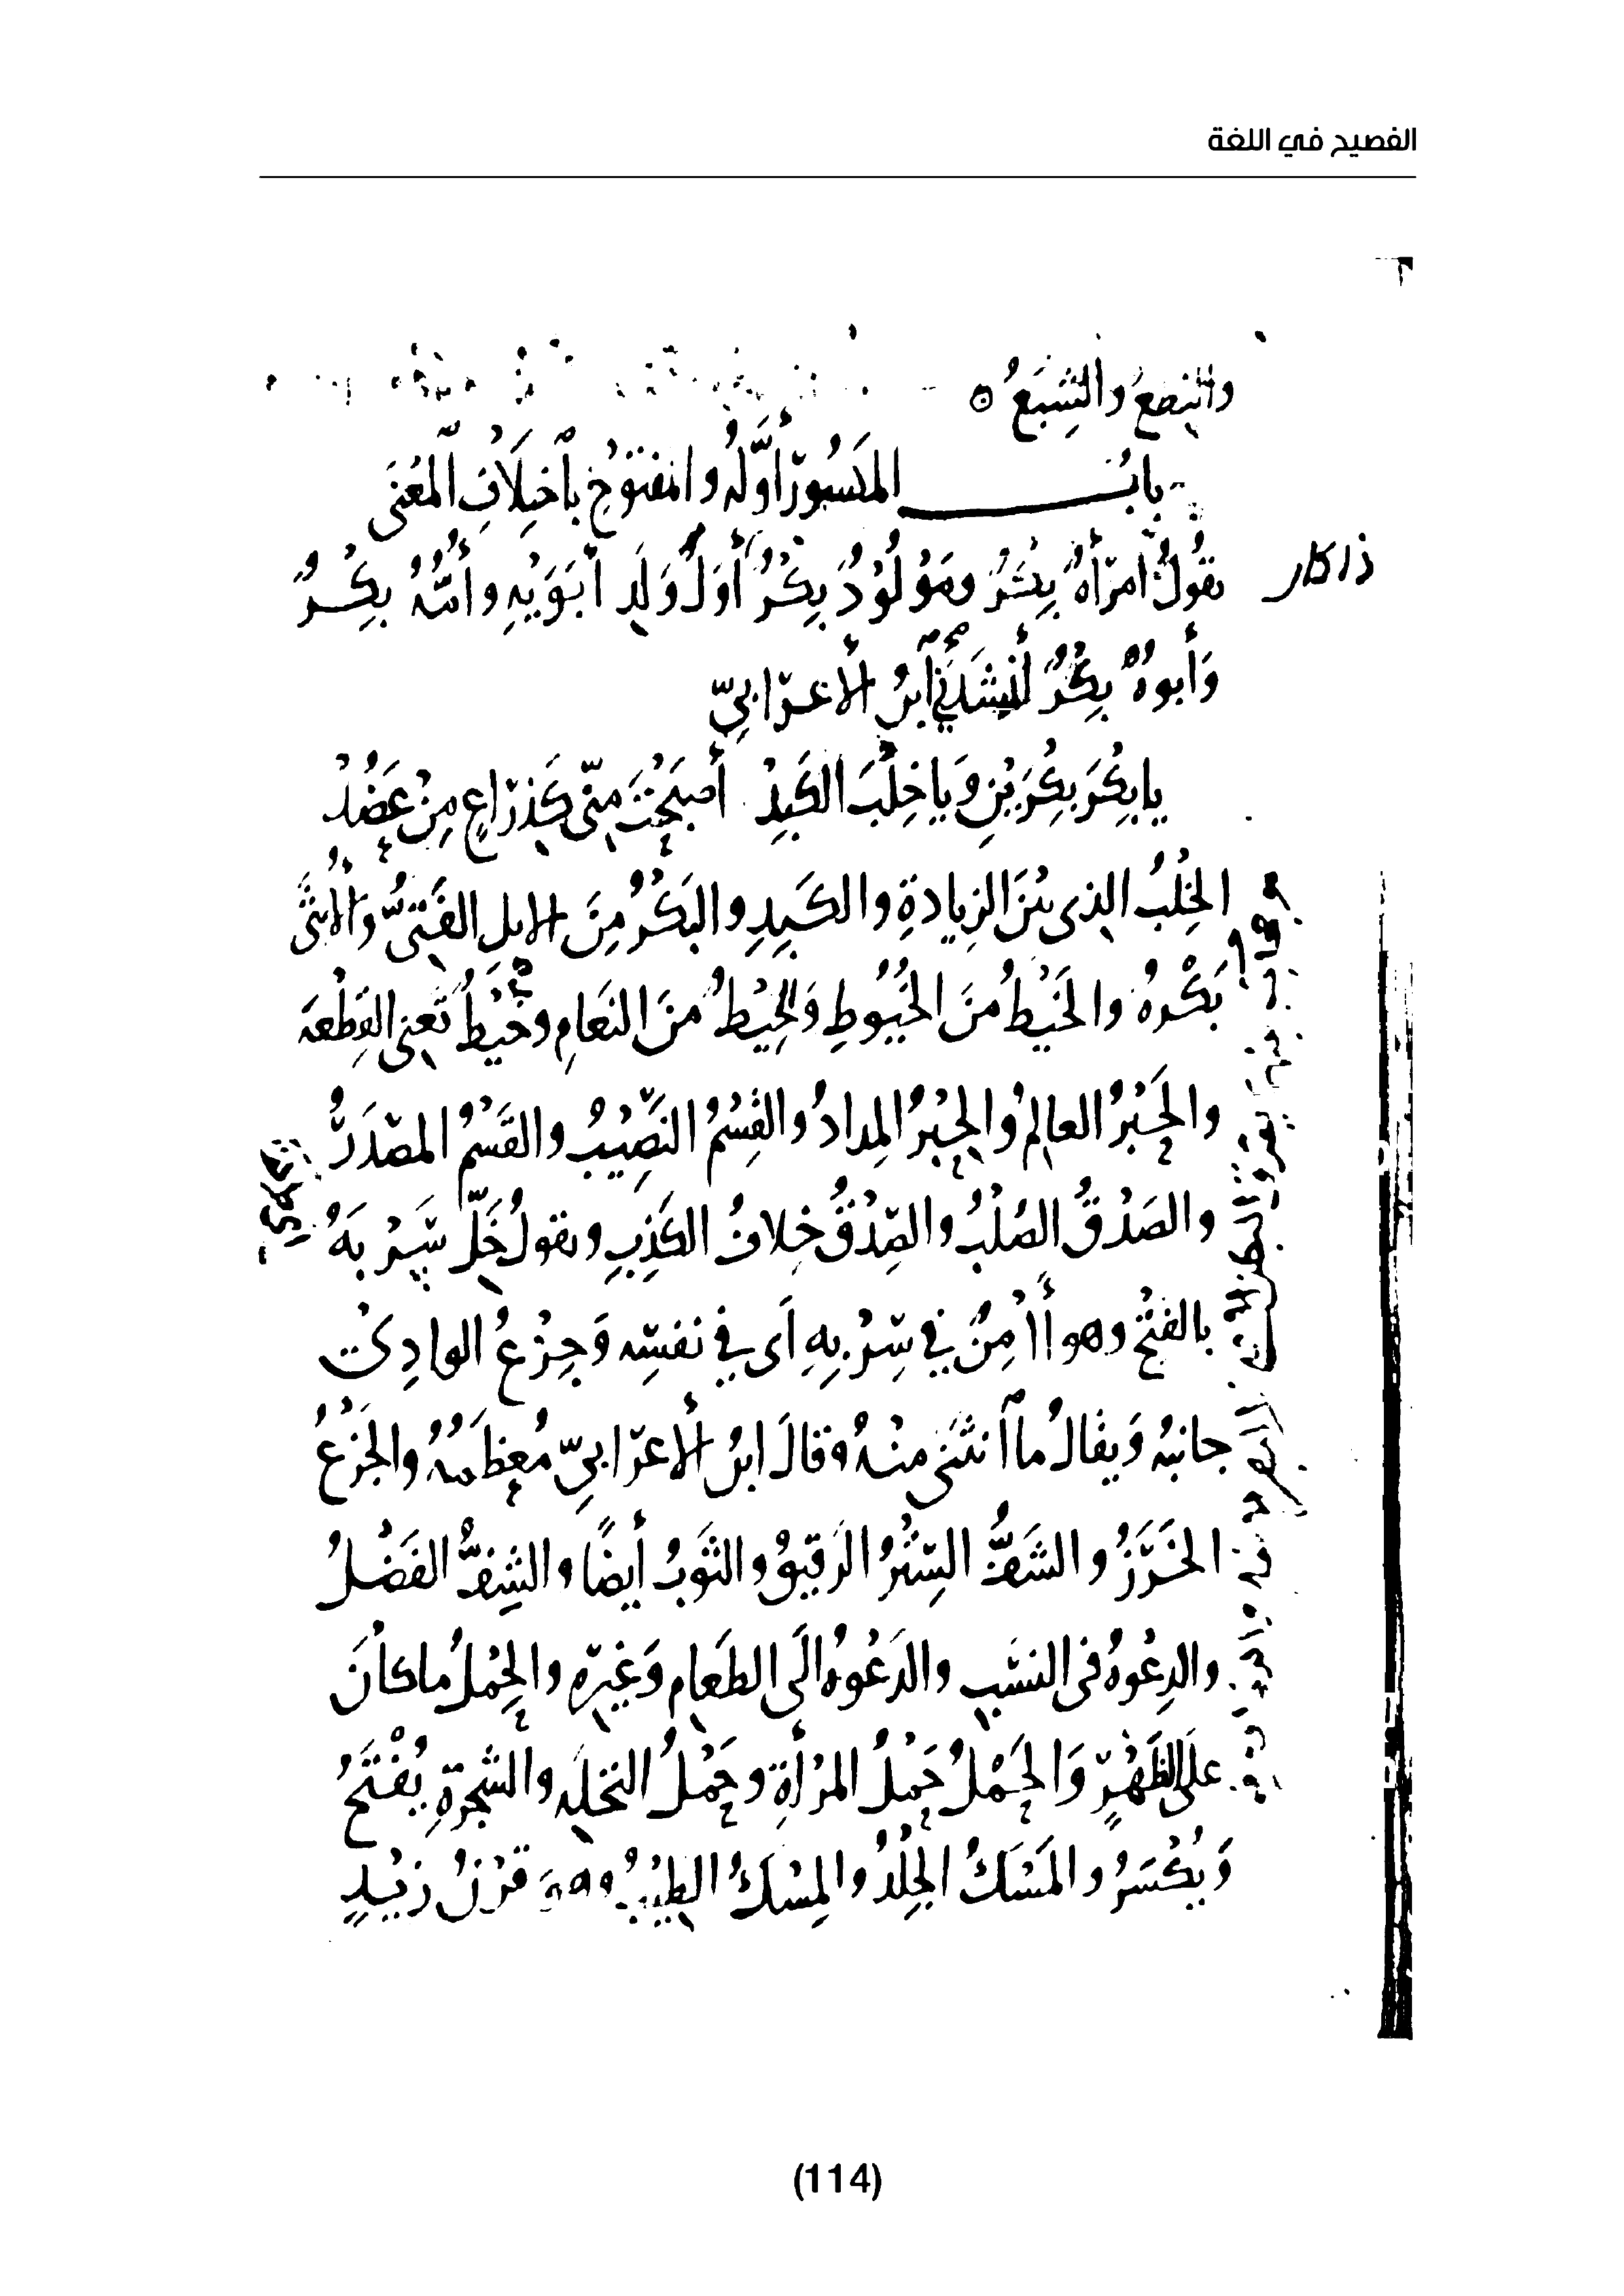 الفصيح في اللغة
والنِطَعُ والشِبَعُ
بابُ المَكسُورِ أَوَّلُهُ والمفتُوحِ بأختِلَافِ المَعْنَى
تقُولُ امرَأةٌ بِكْرٌ ومَوْلُوْدٌ بِكْرٌ أَوَّلُ وَلَدِ أبَوَيْهِ وأُمُّهُ بِكْرٌ
وَأَبُوهُ بِكْرٌ أنشَدَنِي ابنُ الأعرَابِيّ
يا بِكْرَ بِكْرَيْنِ وَيا خِلْبَ الكَبِدْ أصبَحْتَ مِنّي كَذِرَاعٍ مِنْ عَضُدْ
الخِلْبُ الذي بَيْنَ الزِيادةِ والكَبِدِ والبَكْرُ مِنَ الابلِ الفَتِيُّ والأُنثَى
بَكْرةٌ والخَيْطُ مِنَ الخُيُوطِ وَالخِيْطُ مِنَ النَعَامِ وخَيْطٌ تَعني القِطْعَة
والحَبْرُ العالِمُ والحِبْرُ المِدادُ والقِسْمُ النَصِيْبُ والقَسْمُ المصْدَرُ
والصَدْقُ الصُلْبُ والصِدْقُ خِلافُ الكَذِبِ وتقولُ خَلِّ سَرْبَهُ
بالفَتْحِ وهو أٰمِنٌ في سِرْبِهِ أى في نفسِه وَجِزْعُ الوادِىْ
جانبُهُ وَيقالُ ما أنثَنَى منْهُ وقالَ ابنُ الأعرَابيّ مُعْظَمُهُ والجَزْعُ
الخَرَزُ والشَفُّ السِّتْرُ الرَقيقُ والثَوبُ أيضًا والشِفُّ الفَضْلُ
والدِعْوةُ في النسَبِ والدَعْوةُ الَى الطعَامِ وَغيْرِهِ والحِمْلُ ما كانَ
علَى الظَهْرِ وَالحَمْلُ حَمْلُ المرْأةِ وحَمْلُ النخلَةِ والشجَرةِ يُفْتَحُ
وَيُكْسَرُ والمَسْكُ الجِلْدُ والمِسْكُ الطِيْبُ وهوَ قَرْنُ زَيْدٍ
(114)